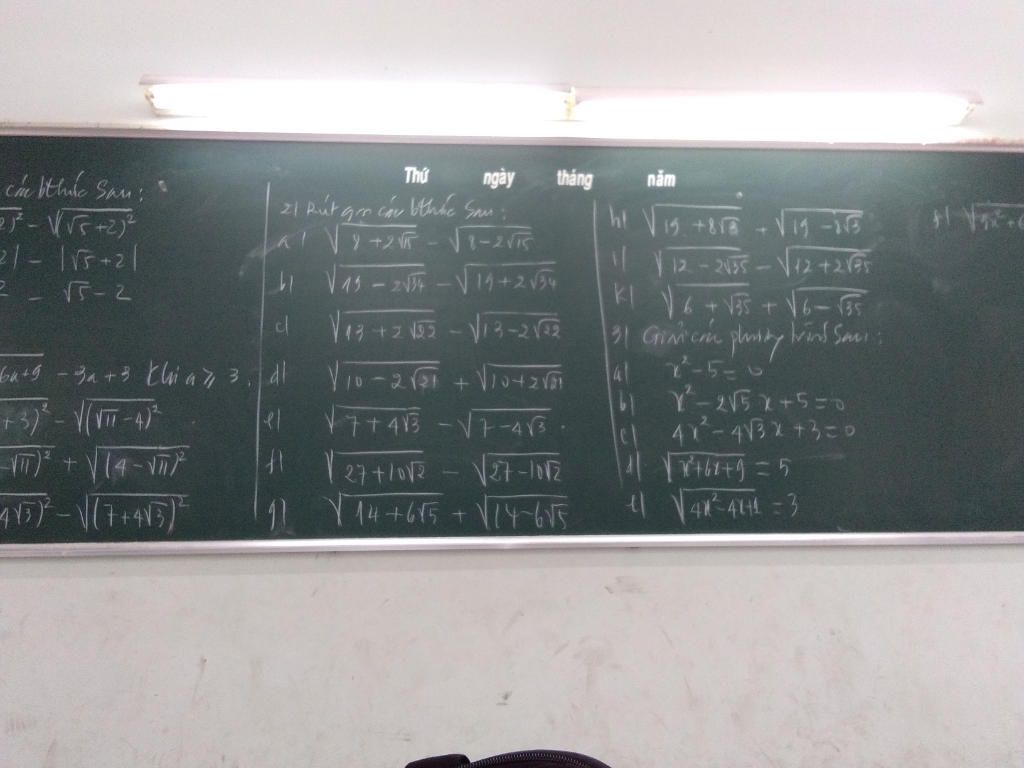 Thứ ngày tháng năm
các bthức sau:
2)² - √(√5+2)²
2| - |√5+2|
2 - √5-2
6a+9 - 3a+3 khi a ≥ 3.
+3)² - √(√11-4)²
-√11)² + √(4-√11)²
4√3)² - √(7+4√3)²
2) Rút gọn các bthức sau:
a) √8+2√15 - √8-2√15
b) √19-2√34 - √19+2√34
c) √13+2√22 - √13-2√22
d) √10-2√21 + √10+2√21
e) √7+4√3 - √7-4√3.
f) √27+10√2 - √27-10√2
g) √14+6√5 + √14-6√5
h) √19+8√3 + √19-8√3
i) √12-2√35 - √12+2√35
k) √6+√35 + √6-√35
3) Giải các phương trình sau:
a) x²-5=0
b) x²-2√5x+5=0
c) 4x²-4√3x+3=0
d) √x²+6x+9 = 5
e) √4x²-4x+1 = 3